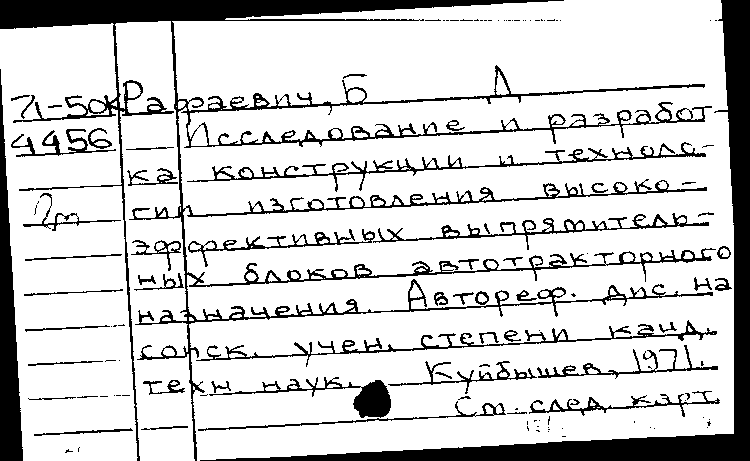 71-50к Рафаевич, Б Д
4456 Исследование и разработ-
ка конструкции и техноло-
2т гии изготовления высоко-
эффективных выпрямитель-
ных блоков автотракторного
назначения. Автореф. дис. на
соиск. учен. степени канд.
техн наук. Куйбышев, 1971.
См. след. карт.